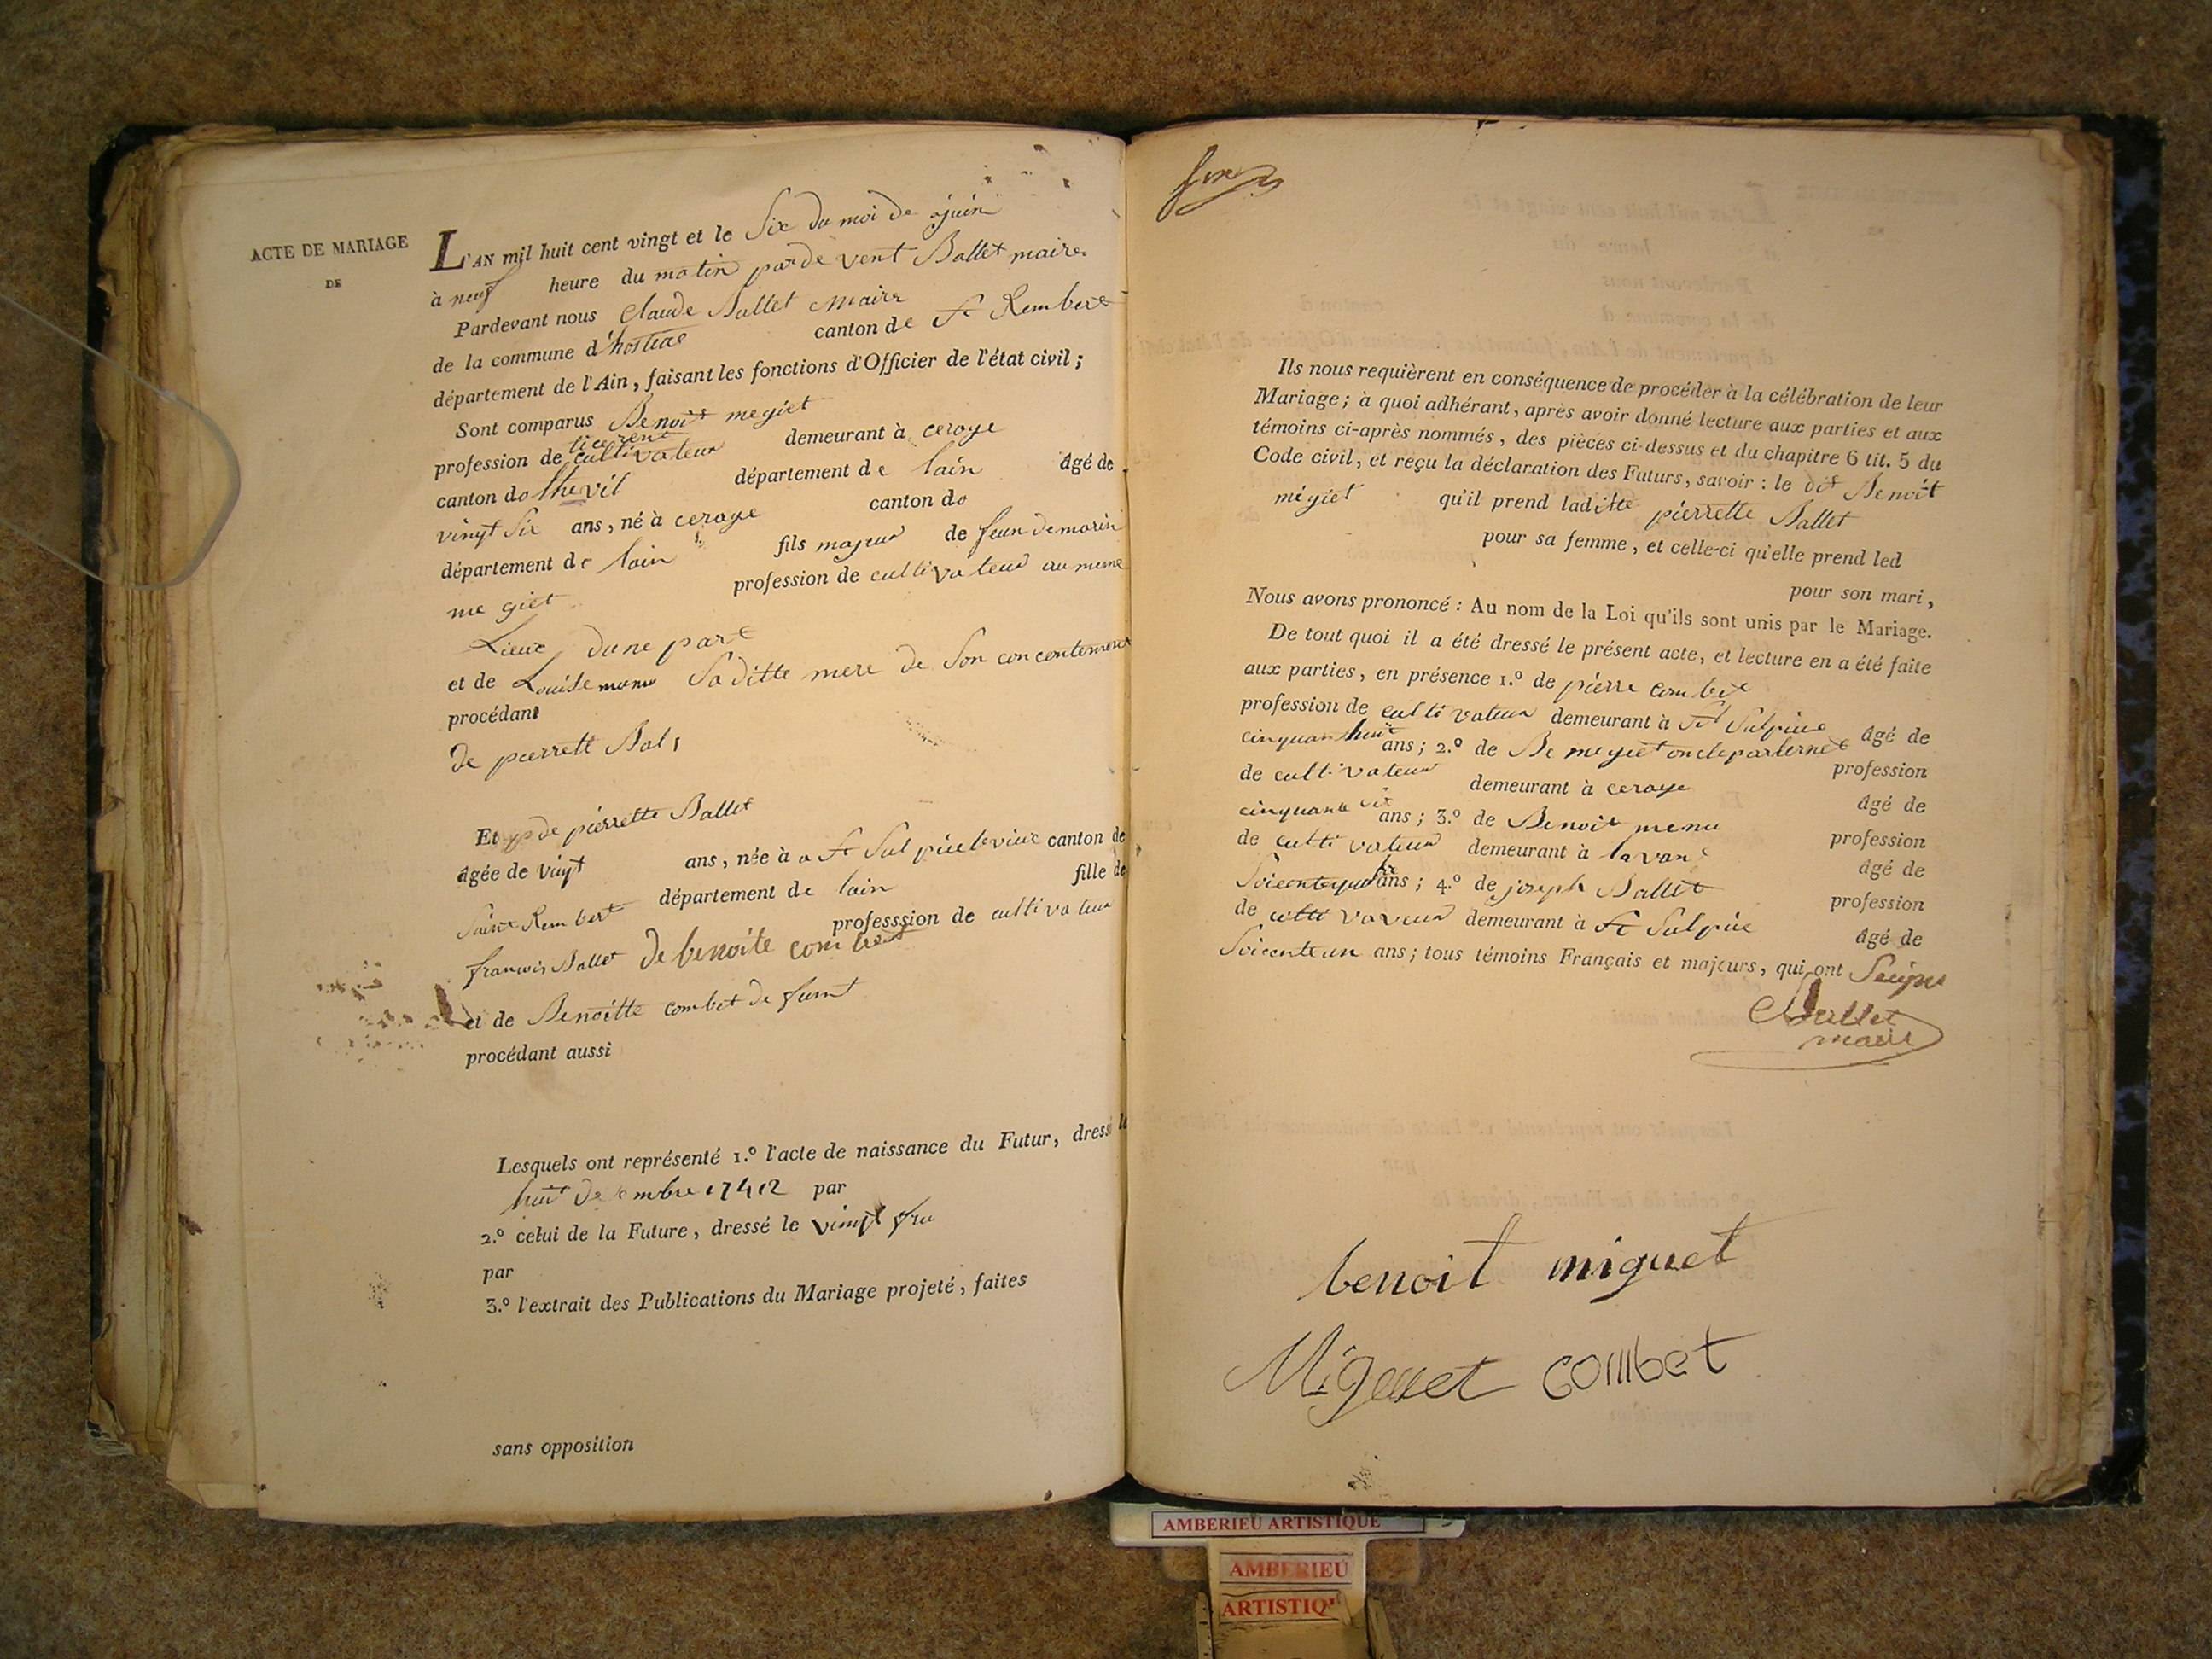 ACTE DE MARIAGE
DE
L'AN mil huit cent vingt et le Six du moi de juin
à neuf heure du matin pardevent Ballet maire
Pardevant nous Claude Ballet maire
de la commune d'hostiac canton de St Rembert
département de l'Ain, faisant les fonctions d'Officier de l'état civil;
Sont comparus Benoit megiet
profession de cultivateur demeurant à ceroye
canton do lhevil département de lain âgé de
vingt Six ans, né à ceroye canton do
département de lain fils majeur de feu
me giet profession de cultivateur au meme
Lieux dune part
et de Louise Saditte mere de Son concentement
procédant
de pierrett Bal
Et de pierrette Ballet
âgée de vingt ans, née à a St Sulpice le viux canton de
Saint Rembert département de lain fille de
francois Ballet de benoite professsion de cultivateur
et de Benoitte combet
procédant aussi
Lesquels ont représenté 1.º l'acte de naissance du Futur, dressé le
huit par
2.º celui de la Future, dressé le vingt
par
3.º l'extrait des Publications du Mariage projeté, faites
sans opposition
Ils nous requièrent en conséquence de procéder à la célébration de leur
Mariage; à quoi adhérant, après avoir donné lecture aux parties et aux
témoins ci-après nommés, des pièces ci-dessus et du chapitre 6 tit. 5 du
Code civil, et reçu la déclaration des Futurs, savoir: le dit Benoit
mégiet qu'il prend laditte pierrette Ballet
pour sa femme, et celle-ci qu'elle prend led
pour son mari,
Nous avons prononcé: Au nom de la Loi qu'ils sont unis par le Mariage.
De tout quoi il a été dressé le présent acte, et lecture en a été faite
aux parties, en présence 1.º de pierre combet
profession de cultivateur demeurant à St Sulpice âgé de
cinquante huit ans; 2.º de Be megiet oncle parternel profession
de cultivateur demeurant à ceroye âgé de
cinquante six ans; 3.º de Benoit menu profession
de cultivateur demeurant à lavant âgé de
ans; 4.º de joseph Ballet profession
de demeurant à St Sulpice âgé de
Soicenteun ans; tous témoins Français et majeurs, qui ont Seigne
Ballet
maire
benoit miguet
Miguet combet
AMBERIEU ARTISTIQUE
AMBERIEU
ARTISTIQ